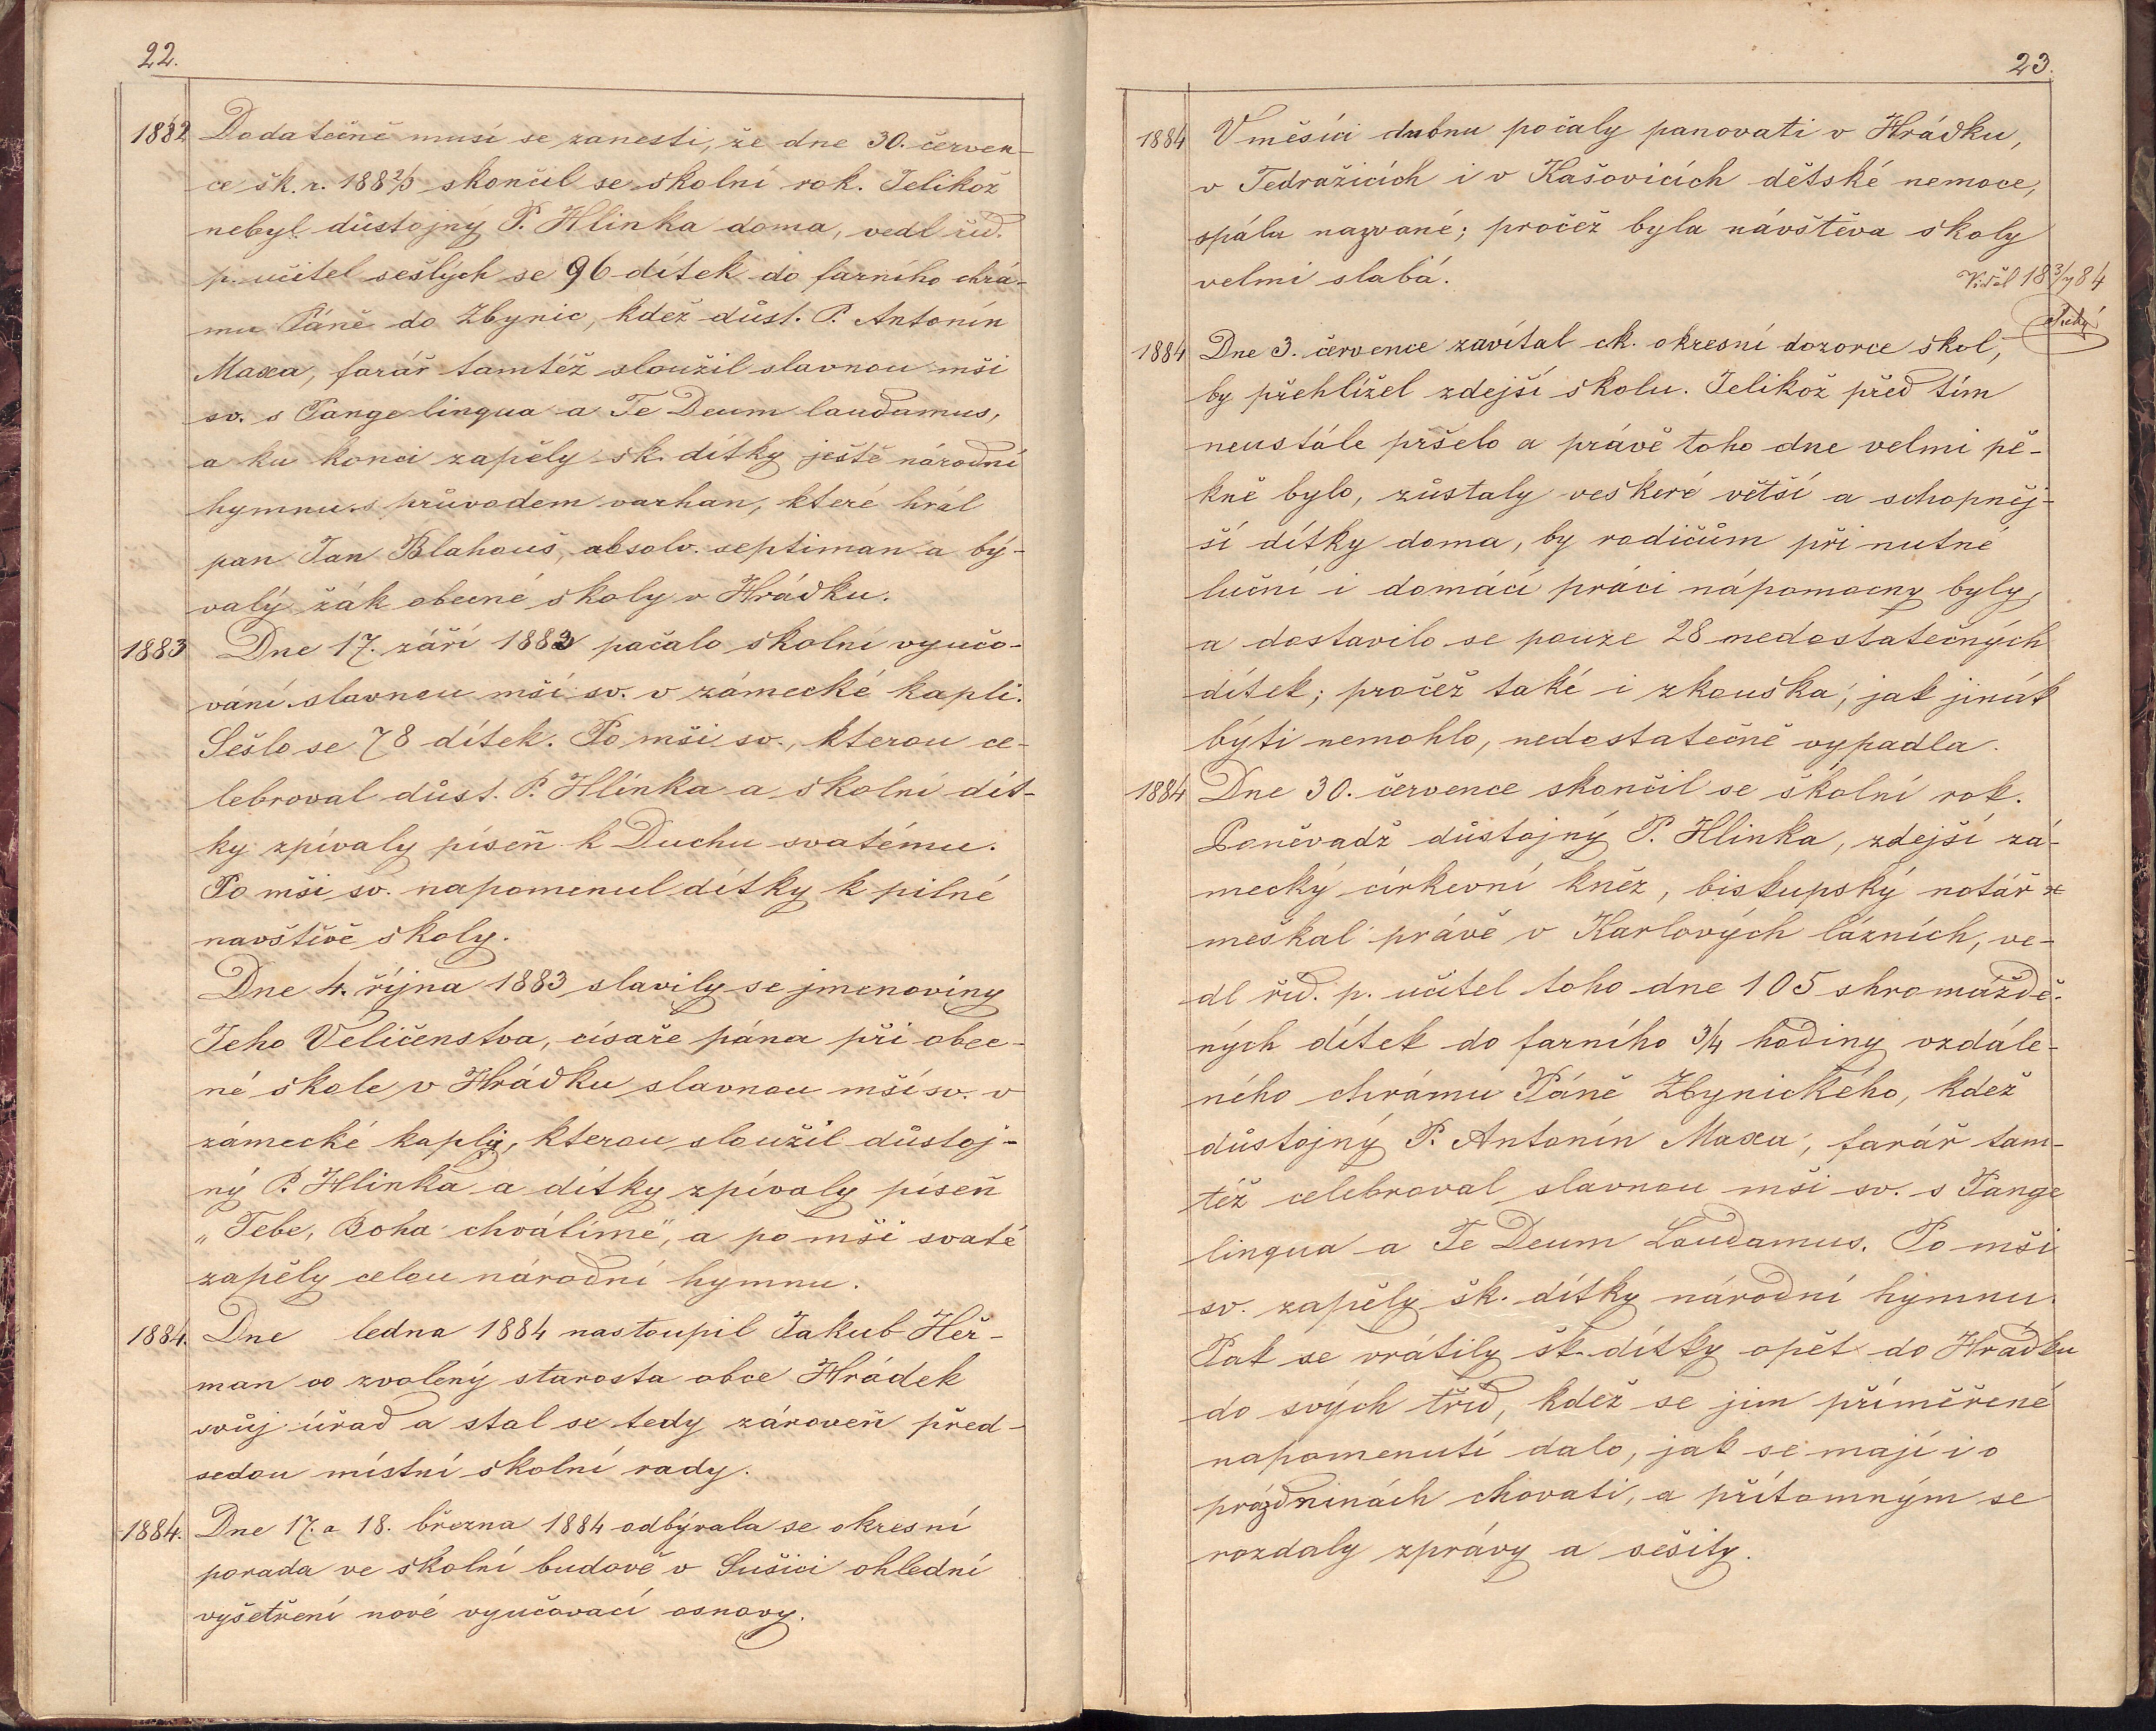 22.
1882 Dodatečně musí se zanesti, že dne 30. červen-
ce šk. r. 188 2/3 skončil se školní rok. Jelikož
nebyl důstojný P. Hlinka doma, vedl říd.
p. učitel sešlých se 96 dítek do farního chrá-
mu Páně do Zbynic, kdež důst. P. Antonín
Maxa, farář tamtéž sloužil slavnou mši
sv. s Pange lingua a Te Deum laudamus,
a ku konci zapěly šk. dítky ještě národní
hymnu s průvodem varhan, které hrál
pan Jan Blahouš, absolv. septiman a bý-
valý žák obecné školy v Hrádku.
1883 Dne 17. září 1883 počalo školní vyučo-
vání slavnou mší sv. v zámecké kapli.
Sešlo se 78 dítek. Po mši sv., kterou ce-
lebroval důst. P. Hlinka a školní dít-
ky zpívaly píseň k Duchu svatému.
Po mši sv. napomenul dítky k pilné
navštívě školy.
Dne 4. října 1883 slavily se jmenoviny
Jeho Veličenstva, císaře pána při obec-
né škole v Hrádku slavnou mší sv. v
zámecké kapli, kterou sloužil důstoj-
ný P. Hlinka a dítky zpívaly píseň
„Tebe, Boha chválíme", a po mši svaté
zapěly celou národní hymnu.
1884. Dne ledna 1884 nastoupil Jakub Heř-
man co zvolený starosta obce Hrádek
svůj úřad a stal se tedy zároveň před-
sedou místní školní rady.
1884. Dne 17. a 18. března 1884 odbývala se okresní
porada ve školní budově v Sušici ohlední
vyšetření nové vyučovací osnovy.
23.
1884 V měsíci dubnu počaly panovati v Hrádku,
v Tedražicích i v Kašovicích dětské nemoce,
spála nazvané; pročež byla návštěva školy
velmi slabá.
Viděl 18 3/7 84
1884 Dne 3. července zavítal ck. okresní dozorce škol,
by přehlížel zdejší školu. Jelikož před tím
neustále pršelo a právě toho dne velmi pě-
kně bylo, zůstaly veškeré větší a schopněj-
ší dítky doma, by rodičům při nutné
luční i domácí práci nápomocny byly,
a dostavilo se pouze 28 nedostatečných
dítek; pročež také i zkouška, jak jinák
býti nemohlo, nedostatečně vypadla.
1884 Dne 30. července skončil se školní rok.
Poněvadž důstojný P. Hlinka, zdejší zá-
mecký církevní kněz, biskupský notář
meškal právě v Karlových lázních, ve-
dl říd. p. učitel toho dne 105 shromáždě-
ných dítek do farního 3/4 hodiny vzdále-
ného chrámu Páně Zbynického, kdež
důstojný P. Antonín Maxa, farář tam-
též celebroval slavnou mši sv. s Pange
lingua a Te Deum Laudamus. Po mši
sv. zapěly šk. dítky národní hymnu.
Pak se vrátily šk. dítky opět do Hrádku
do svých tříd, kdež se jim přiměřené
napomenutí dalo, jak se mají i o
prázdninách chovati, a přítomným se
rozdaly zprávy a sešity.